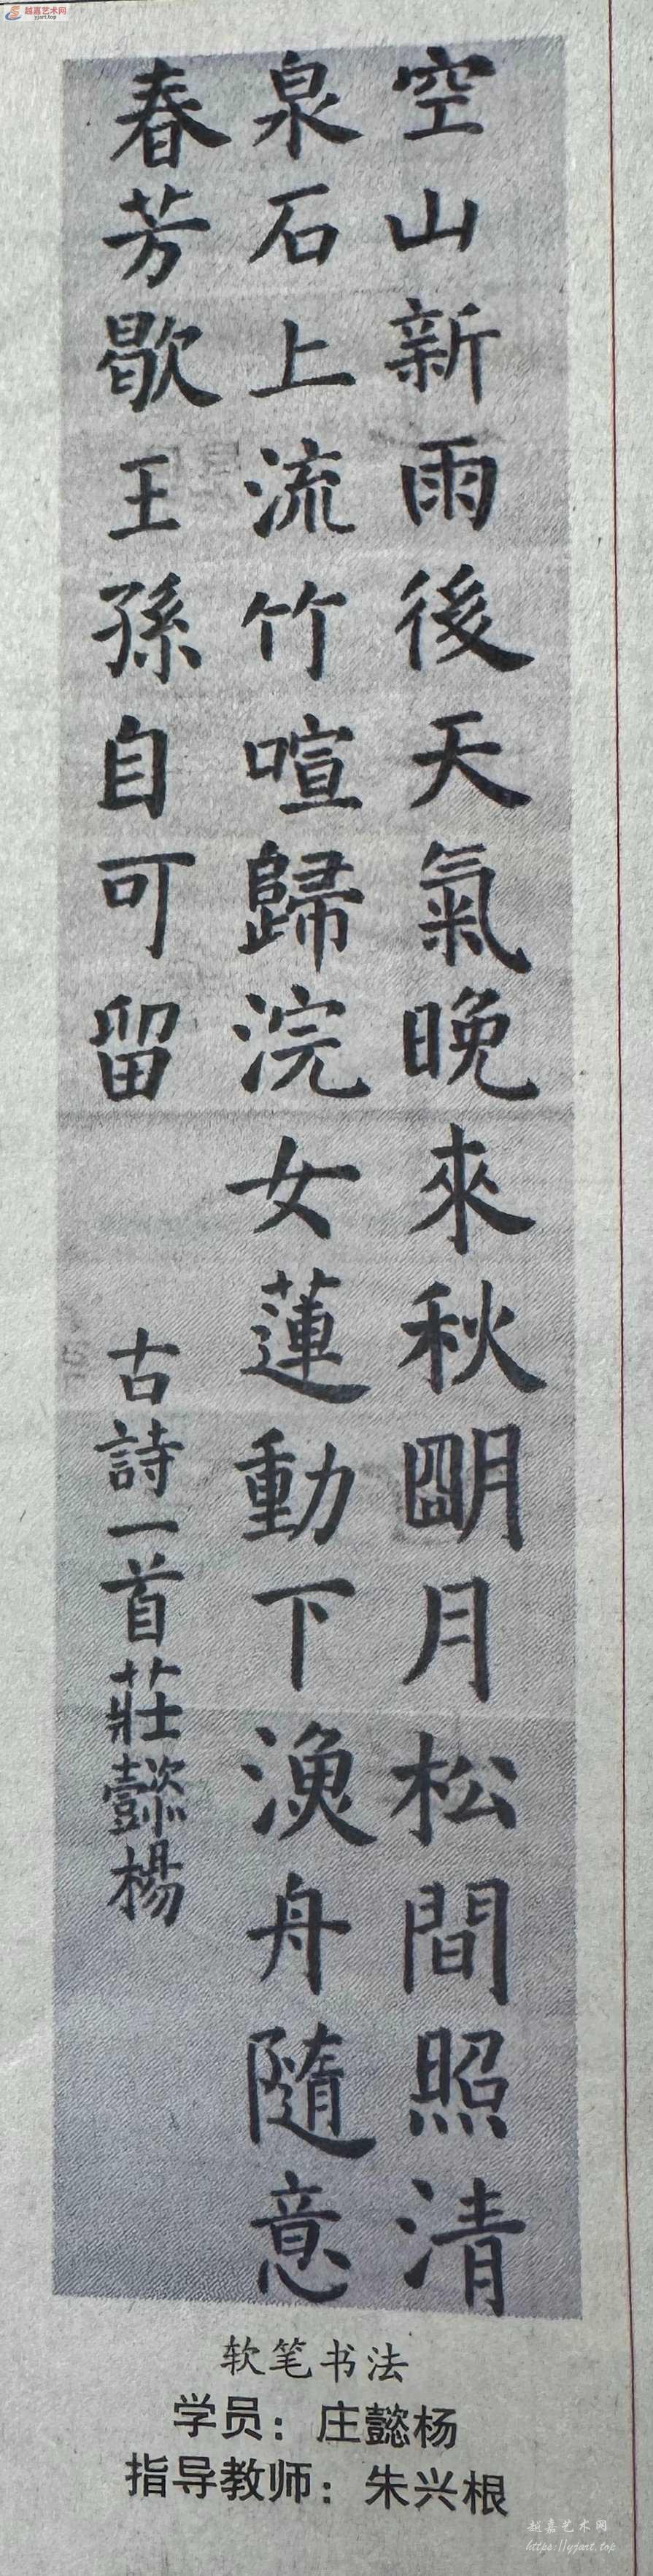 越嘉艺术网
yjart.top
空山新雨後天氣晚來秋朙月松間照清
泉石上流竹喧歸浣女蓮動下漁舟隨意
春芳歇王孫自可留
古詩一首莊懿楊
软笔书法
学员：庄懿杨
指导教师：朱兴根
越嘉艺术网
https://yjart.top